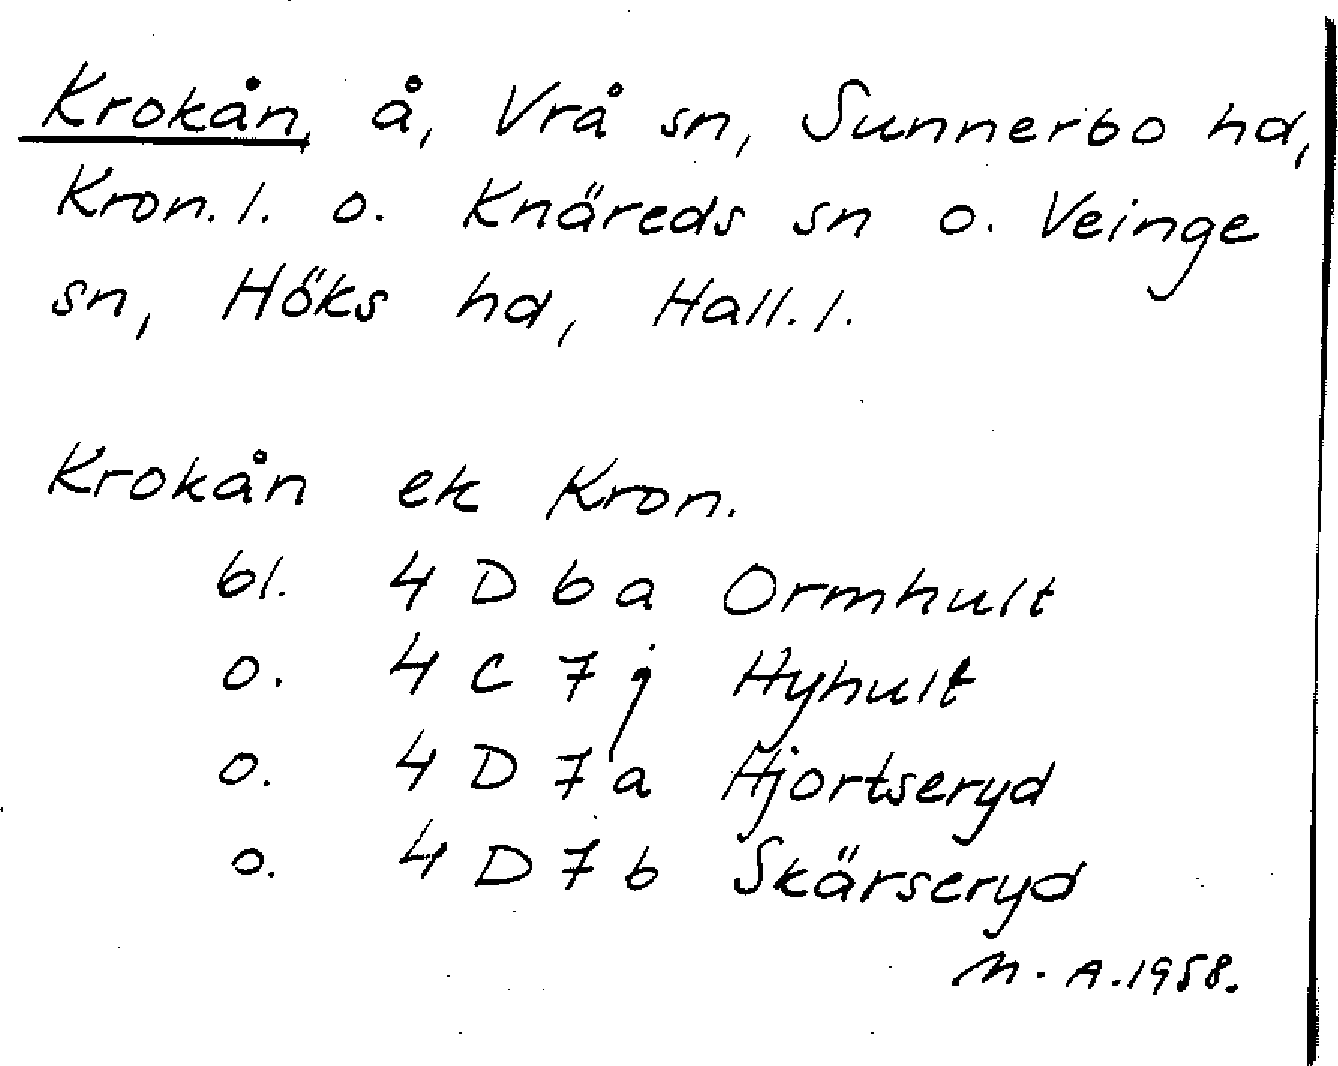 Krokån, å, Vrå sn, Sunnerbo hd,
Kron.l. o. Knäreds sn o. Veinge
sn, Höks hd, Hall.l.
Krokån ek Kron.
bl. 4 D 6 a Ormhult
o. 4 C 7 j Hyhult
o. 4 D 7 a Hjortseryd
o. 4 D 7 b Skärseryd
N. A. 1958.